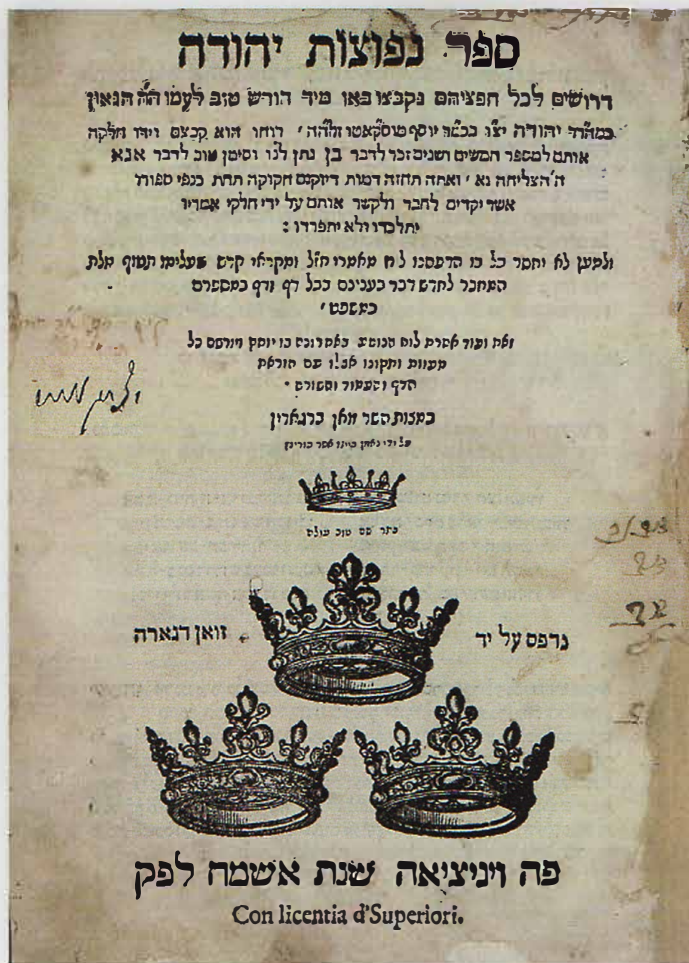 ספר נפוצות יהודה
דרושים לכל חפציהם נקבצו באו מיד דורש טוב לעמו הה הגאון
כמהרר יהודה יצו בכמר יוסף מוסקאטו זלהה׳ רוחו הוא קבצם וידו חלקה
אותם למספר חמשים ושנים זכר לדבר בן נתן לנו וסימן טוב לדבר אנא
ה׳ הצליחה נא׳ ואתה תחזה דמות דיוקנם חקוקה תחת כנפי ספורו
אשר יקדים לחבר ולקשר אותם על ידי חלקי אמריו
יתלכדו ולא יתפרדו :
ולמען לא יחסר כל בו הדפסנו לח מאמרי חזל ומקראי קדש
המחבר לחדש דבר בענינם בכל דף ודף במספרם
כמשפט׳
זאת ועוד אחרת לוח
טעות ותקונו אצלו עם הוראת
הדף והעמוד והשורה׳
במצות השר זואן בראגאדין
על ידי
כתר שם טוב עולה
נדפס על יד זואן דגארה
פה ויניציאה שנת אשמח לפק
Con licentia d'Superiori.